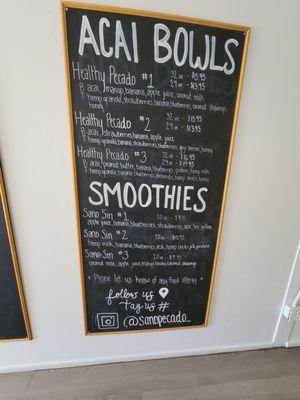 ACAI BOWLS
Healthy Pecado #1 32 oz - $15.95
24 oz - $13.95
B acai, mango, banana, apple juice, coconut milk,
T hemp granola, strawberries, banana, blueberries, coconut shavings,
honey
Healthy Pecado #2 32 oz - $15.95
24 oz - $13.95
B acai, strawberries, banana, apple juice
T hemp granola, banana, strawberries, blueberries, goji berries, honey
Healthy Pecado #3 32 oz - $16.95
B acai, peanut butter, banana, blueberries, protein, hemp milk
T hemp granola, banana, blueberries, almonds, hemp seeds, honey
SMOOTHIES
Sano Sin #1 20 oz - $9.95
apple juice, banana, blueberries, strawberries, acai,
Sano Sin #2 20 oz
hemp milk, banana, blueberries, acai, hemp seeds,
Sano Sin #3 20 oz - $9.95
coconut milk, apple juice, mango, banana, coconut shavings
* Please let us know of any food allergy *
follow us
Tag us #
@sanopecado_